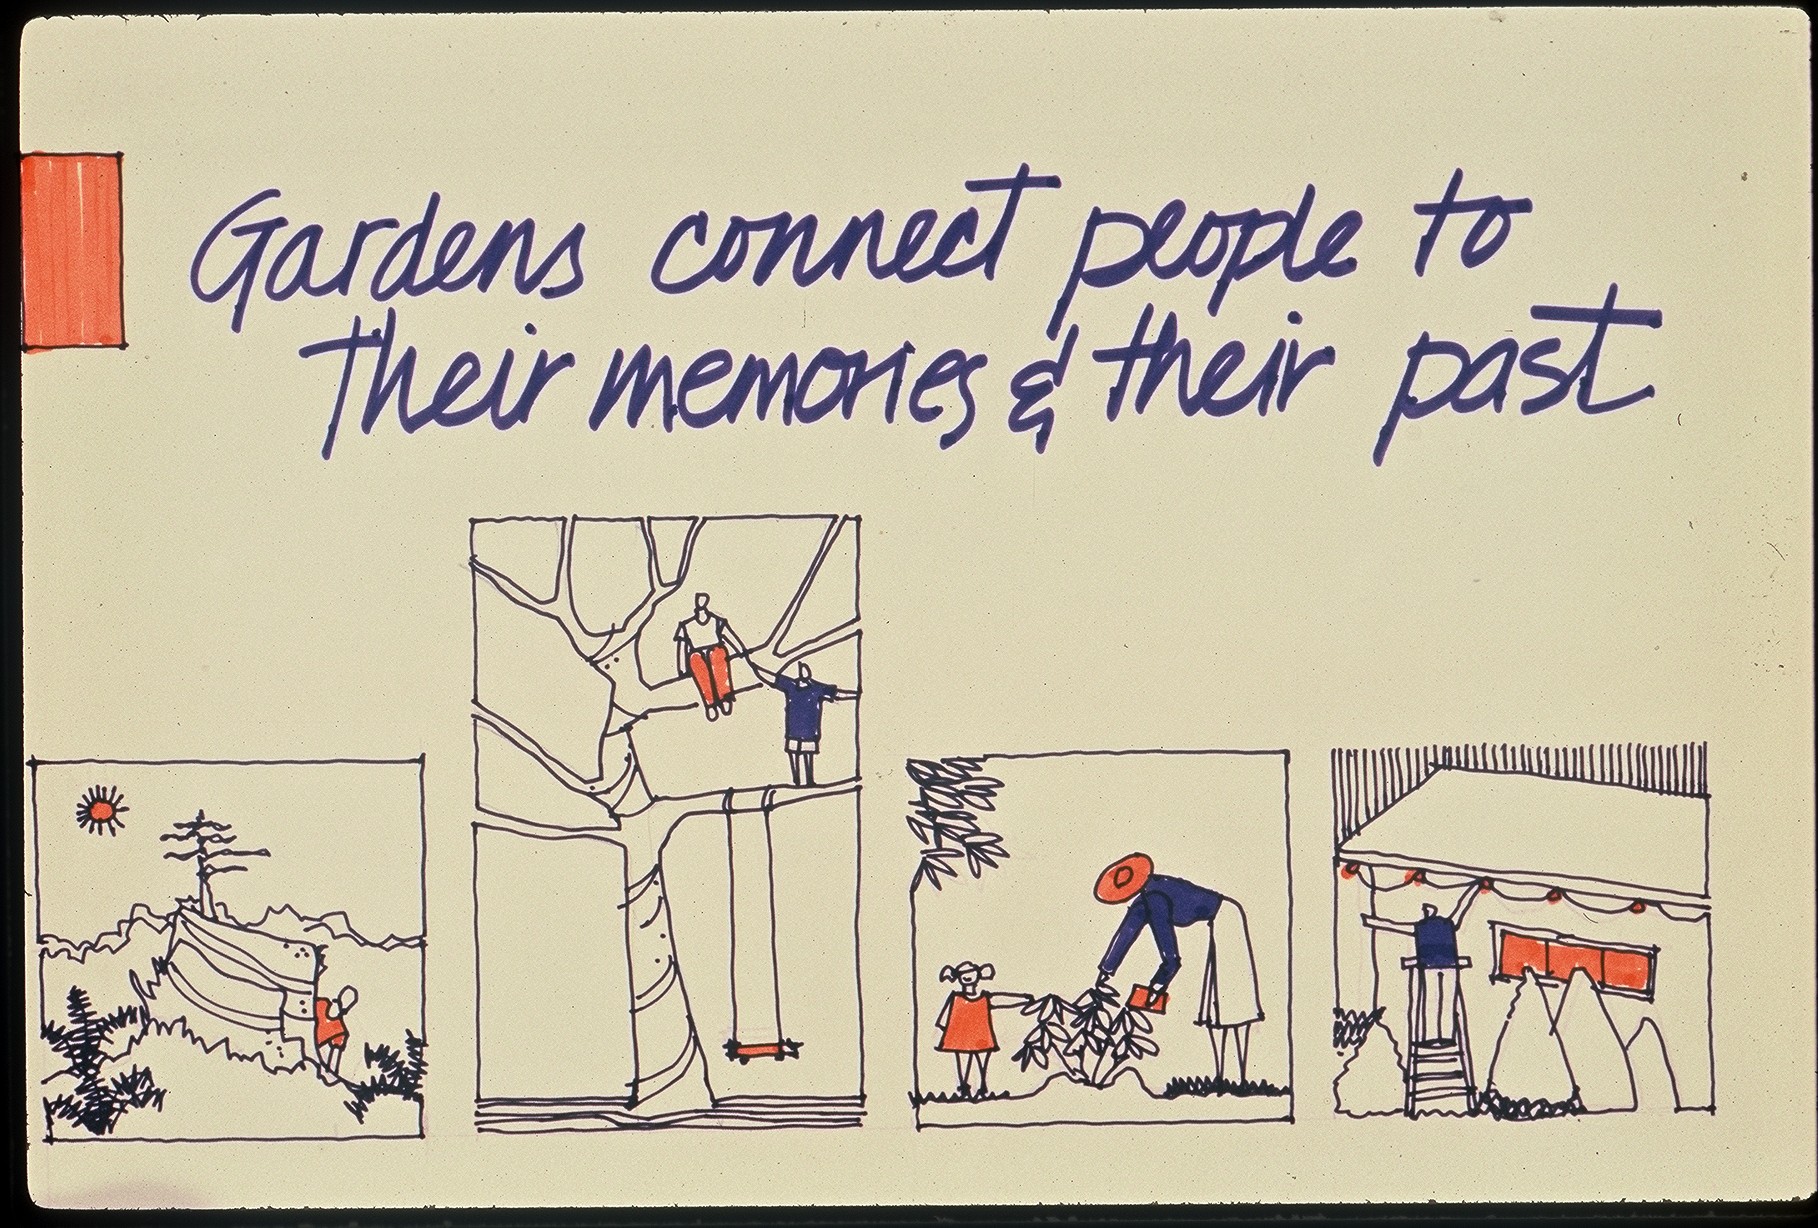 Gardens connect people to
their memories & their past